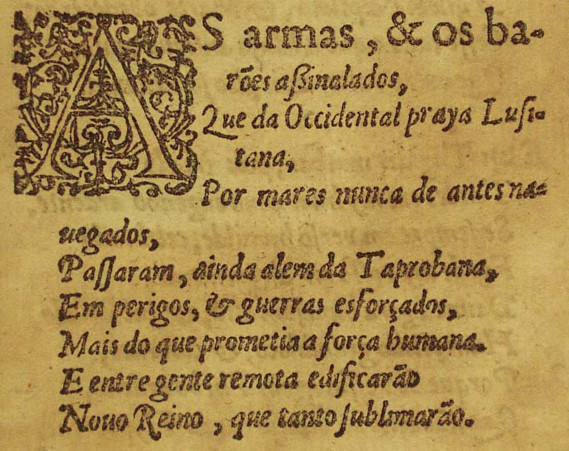 AS armas, & os ba-
rões aßinalados,
Que da Occidental praya Luſi-
tana,
Por mares nunca de antes na-
uegados,
Paſſaram, ainda alem da Taprobana,
Em perigos, & guerras esforçados,
Mais do que prometia a força humana.
E entre gente remota edificarão
Nouo Reino, que tanto ſublimarão.